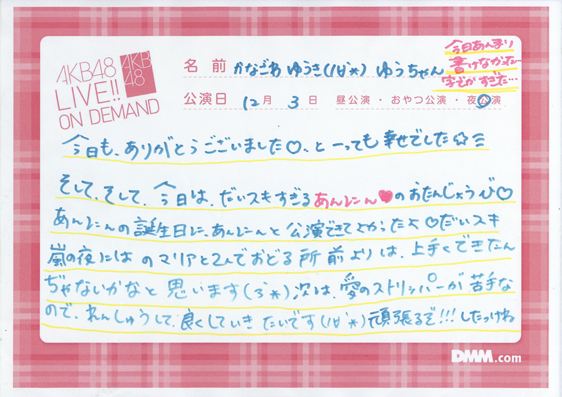 AKB48
LIVE!!
ON DEMAND
AKB
48
名前 かなざわ ゆうき(ﾉ∀`*) ゆうちゃん
今日あんまり
書けなかった…
字でかすぎた…
公演日 12月 3日 昼公演・おやつ公演・夜公演
今日も、ありがとうございました♡、とーっても幸せでした☆ミ
そして、そして、今日は、だいスキすぎるあんにん♥のおたんじょうび♡
あんにんの誕生日に、あんにんと公演できてよかったよ♡だいスキ
嵐の夜にはのマリアと2人でおどる所前よりは、上手くできたん
ぢゃないかなと思います(ろ`*)次は、愛のストリッパーが苦手な
ので、れんしゅうして、良くしていきたいです(ﾉ∀`*)頑張るぞ!!!したっけね
DMM.com